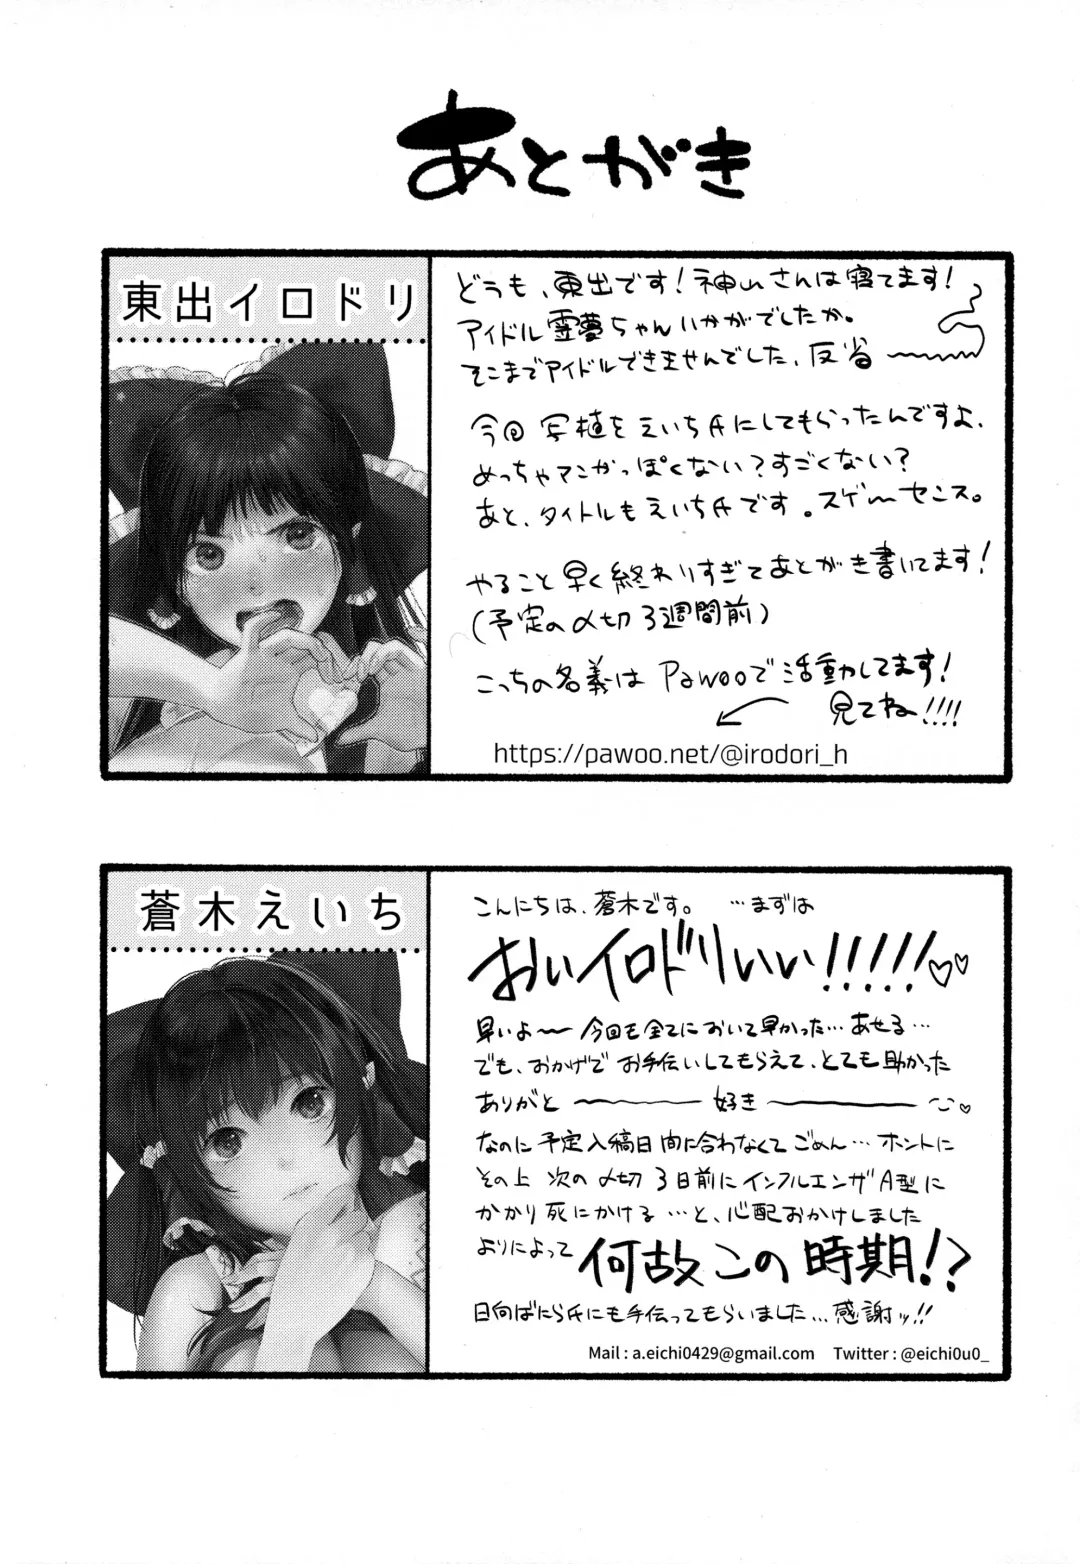 あとがき
東出イロドリ
どうも、東出です!神山さんは寝てます!
アイドル霊夢ちゃんいかがでしたか。
そこまでアイドルできませんでした、反省
今回写植をえいち氏にしてもらったんですよ、
めっちゃマンガっぽくない?すごくない?
あと、タイトルもえいち氏です。スゲーセンス。
やること早く終わりすぎてあとがき書いてます!
(予定の〆切3週間前)
こっちの名義はPawooで活動してます!
見てね!!!!
https://pawoo.net/@irodori_h
蒼木えいち
こんにちは、蒼木です。 …まずは
おいイロドリいい!!!!!♡♡
早いよ〜今回も全てにおいて早かった…あせる…
でも、おかげでお手伝いしてもらえて、とても助かった
ありがと〜好き〜
なのに予定入稿日間に合わなくてごめん…ホントに
その上 次の〆切3日前にインフルエンザA型に
かかり死にかける…と、心配おかけしました
よりによって 何故この時期!?
日向ばにら氏にも手伝ってもらいました…感謝ッ!!
Mail : a.eichi0429@gmail.com Twitter : @eichi0u0_